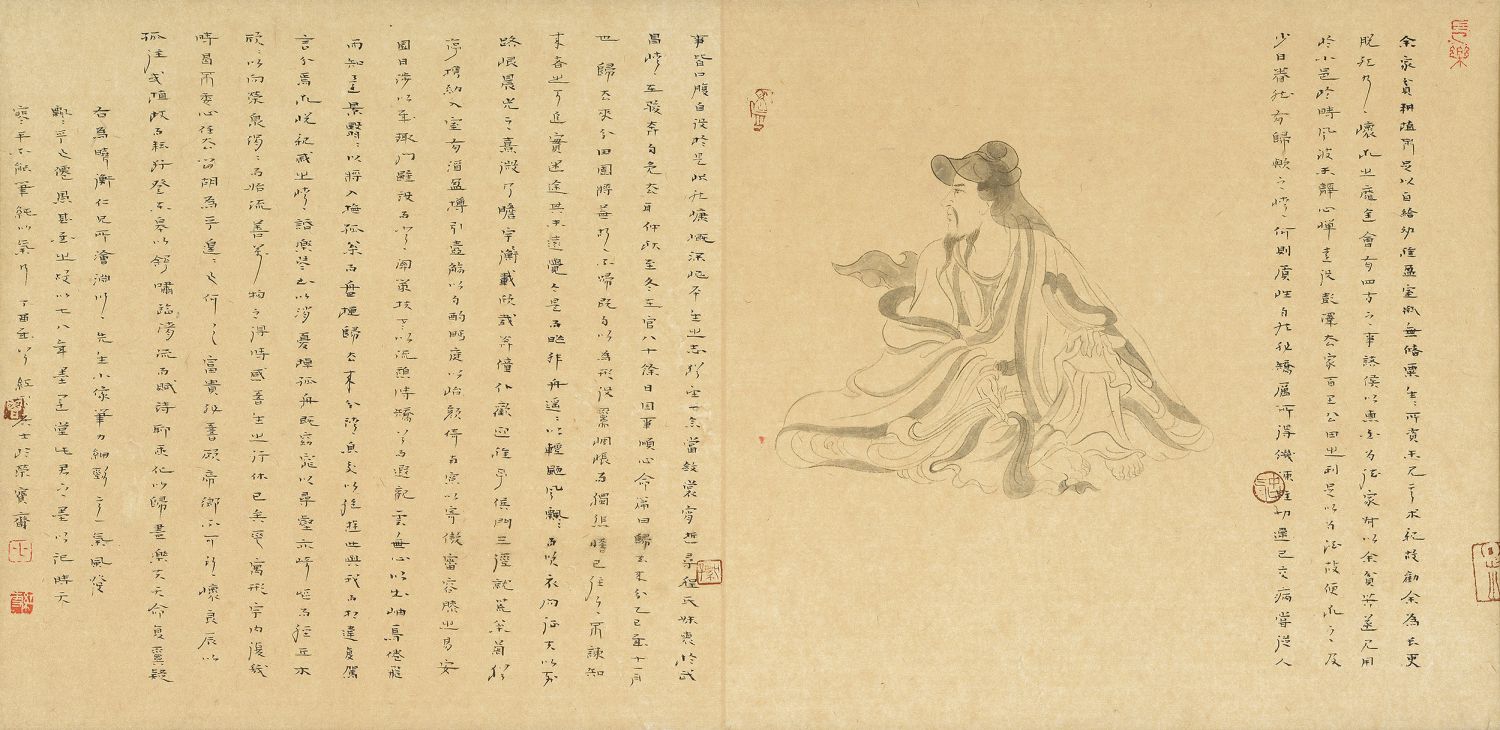 余家貧耕植不足以自給幼稚盈室瓶無儲粟生生所資未見其術親故勸余為長吏
脫然有懷求之靡途會有四方之事諸侯以惠愛為德家叔以余貧苦遂見用
於小邑於時風波未靜心憚遠役彭澤去家百里公田之利足以為酒故便求之及
少日眷然有歸歟之情何則質性自然非矯厲所得飢凍雖切違己交病嘗從人
事皆口腹自役於是悵然慷慨深愧平生之志猶望一稔當斂裳宵逝尋程氏妹喪於武
昌情在駿奔自免去職仲秋至冬在官八十餘日因事順心命篇曰歸去來兮乙巳歲十一月
也 歸去來兮田園將蕪胡不歸既自以為形役奚惆悵而獨悲悟已往之不諫知
來者之可追實迷途其未遠覺今是而昨非舟遙遙以輕颺風飄飄而吹衣問征夫以前
路恨晨光之熹微乃瞻衡宇載欣載奔僮僕歡迎稚子候門三徑就荒松菊猶
存攜幼入室有酒盈樽引壺觴以自酌眄庭以怡顏倚南窗以寄傲審容膝之易安
園日涉以成趣門雖設而常關策扶老以流憩時矯首而遐觀雲無心以出岫鳥倦飛
而知還景翳翳以將入撫孤松而盤桓歸去來兮請息交以絕遊世與我而相違復駕
言兮焉求悅親戚之情話樂琴書以消憂棹孤舟既窈窕以尋壑亦崎嶇而經丘木
欣欣以向榮泉涓涓而始流善萬物之得時感吾生之行休已矣乎寓形宇內復幾
時曷不委心任去留胡為乎遑遑何之富貴非吾願帝鄉不可期懷良辰以
孤往或植杖而耘耔登東皋以舒嘯臨清流而賦詩聊乘化以歸盡樂夫天命復奚疑
右為曉衡仁兄所繪淵明先生小像筆力細勁一氣風發
以七八年墨以記時天
寒手不能筆純以氣丁酉於榮寶齋
長樂